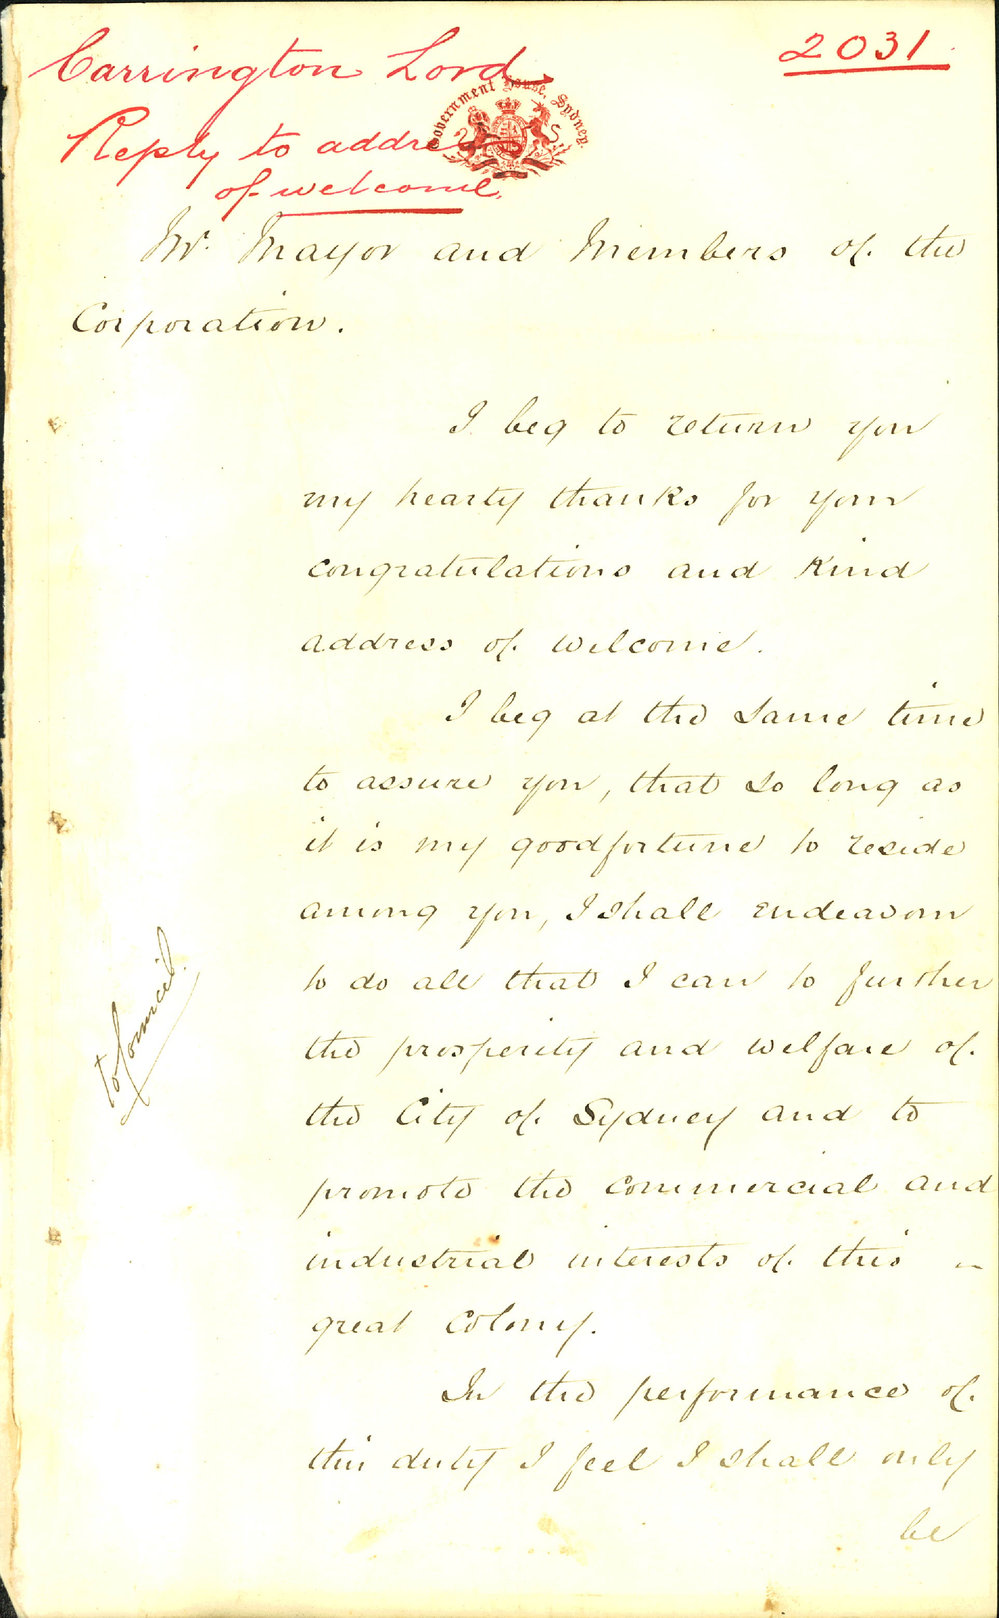 2031
Carrington Lord
Reply to address
of welcome
Government House, Sydney.
Mr. Mayor and Members of the
Corporation.
I beg to return you
my hearty thanks for your
congratulations and kind
address of welcome.
I beg at the same time
to assure you, that so long as
it is my goodfortune to reside
among you, I shall endeavour
to do all that I can to further
the prosperity and welfare of
the City of Sydney and to
promote the commercial and
industrial interests of this
great colony.
In the performance of
this duty I feel I shall only
be
to Council.